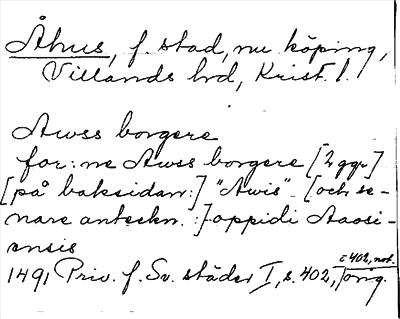 Åhus, f. stad, nu köping,
Villands hrd, Krist. l.
Awss borgere
for:ne Awss borgere [2 ggr]
[på baksidan:] "Awis" [och se-
nare anteckn.:] oppidi Aaosi-
ensis
c 402, not.
1491 Priv. f. Sv. städer I, s. 402, orig.